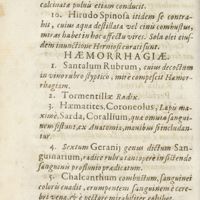 calcinata potui etiam conducit.
10. Hirudo Spinosa itidem se contra-
hit, cuius aqua destillata vel cinis combustus,
miras habet in hoc affectu vires. Sola eius ejus-
dem inunctione Herniosi curati sunt.
HÆMORRHAGIÆ.
1. Santalum Rubrum, cuius decoctum
in vino rubro styptico, mire compescit Hæmor-
rhagiam.
2. Tormentillæ Radix.
3. Hæmatites, Coroneolus, Lapis ma-
xime. Sarda, Corallium, quæ omnia sangui-
nem sistunt, ex Anatomia, manibus stimulan-
tur.
4. Sextum Geranij genus dictum San-
guinarium, radice rubra conspecto in sistendo
sanguinis profluvio prædicatum.
5. Chalcanthum combustum, sanguinei
coloris evadit, erumpentem sanguinem è cere-